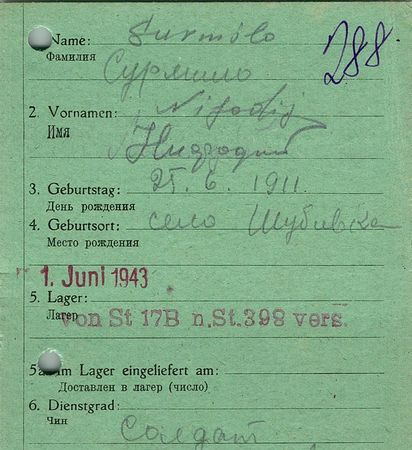 Name: Surmilo 288.
Фамилия Сурмило
2. Vornamen:
Имя
3. Geburtstag: 25. 6. 1911.
День рождения
4. Geburtsort: село Шубивка
Место рождения
1. Juni 1943
5. Lager:
Лагер von St 17B n.St.398 vers.
5a. im Lager eingeliefert am:
Доставлен в лагер (число)
6. Dienstgrad:
Чин Солдат